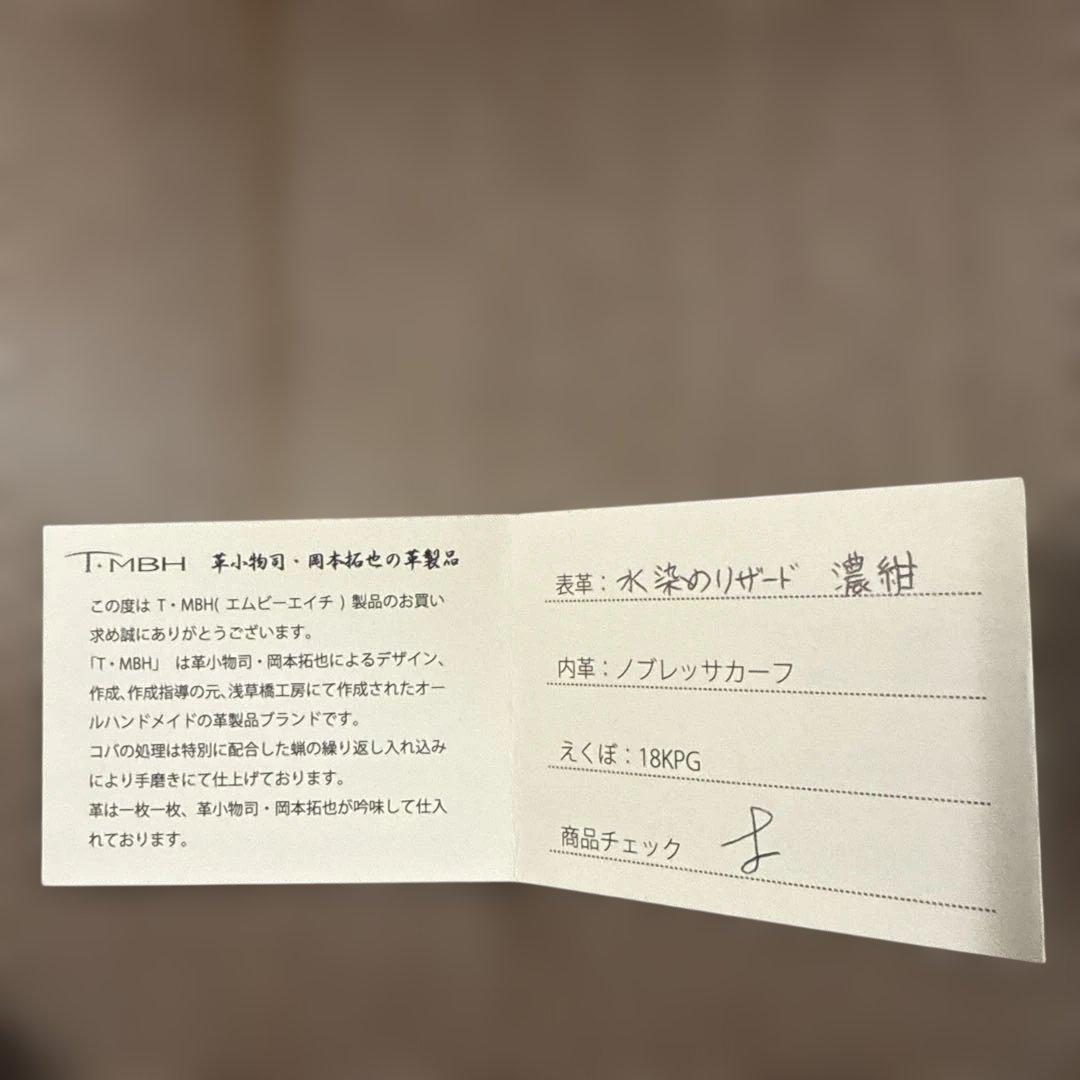 T・MBH 革小物司・岡本拓也の革製品
この度は T・MBH( エムビーエイチ ) 製品のお買い
求め誠にありがとうございます。
「T・MBH」 は革小物司・岡本拓也によるデザイン、
作成、作成指導の元、浅草橋工房にて作成されたオー
ルハンドメイドの革製品ブランドです。
コバの処理は特別に配合した蝋の繰り返し入れ込み
により手磨きにて仕上げております。
革は一枚一枚、革小物司・岡本拓也が吟味して仕入
れております。
表革：水染めリザード 濃紺
内革：ノブレッサカーフ
えくぼ：18KPG
商品チェック